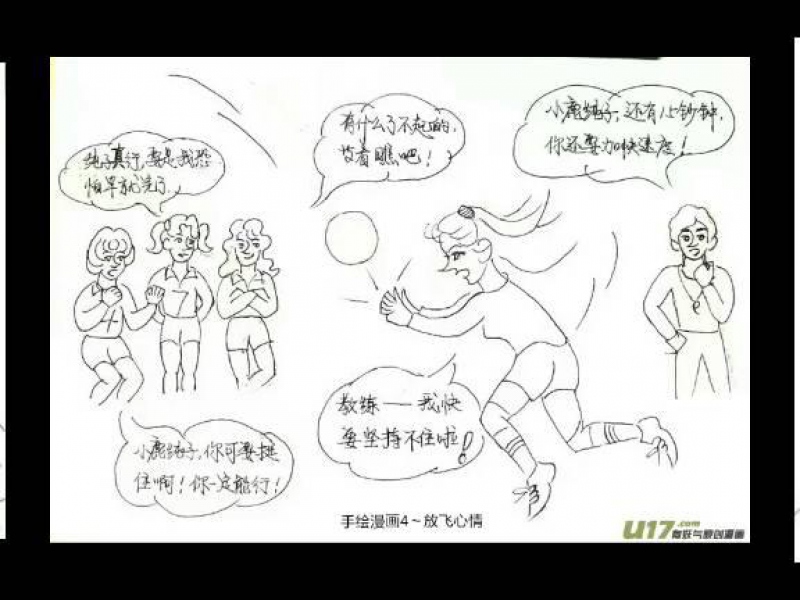 纯子真行,要是我恐
怕早就完了.
有什么了不起的,
等着瞧吧!
小鹿纯子,还有15秒钟,
你还要加快速度!
教练——我快
要坚持不住啦!
小鹿纯子,你可要挺
住啊!你一定能行!
手绘漫画4~放飞心情
U17.com
有妖气原创漫画